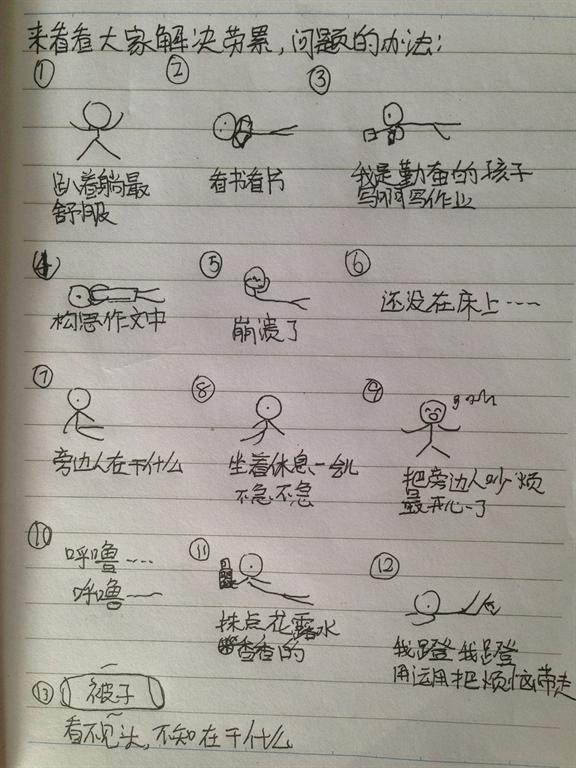 来看看大家解决劳累,问题的办法:
① ② ③
趴着躺最
舒服
看书看书
我是勤奋的孩子
写啊写作业
④ ⑤ ⑥
构思作文中
崩溃了
还没在床上……
⑦ ⑧ ⑨
旁边人在干什么
坐着休息一会儿
不急不急
把旁边人吵烦
最开心了
⑩ ⑪ ⑫
呼噜……
呼噜——
抹点花露水
香香的
我蹬我蹬
用运用把烦恼带走
⑬ 被子
看不见头,不知在干什么